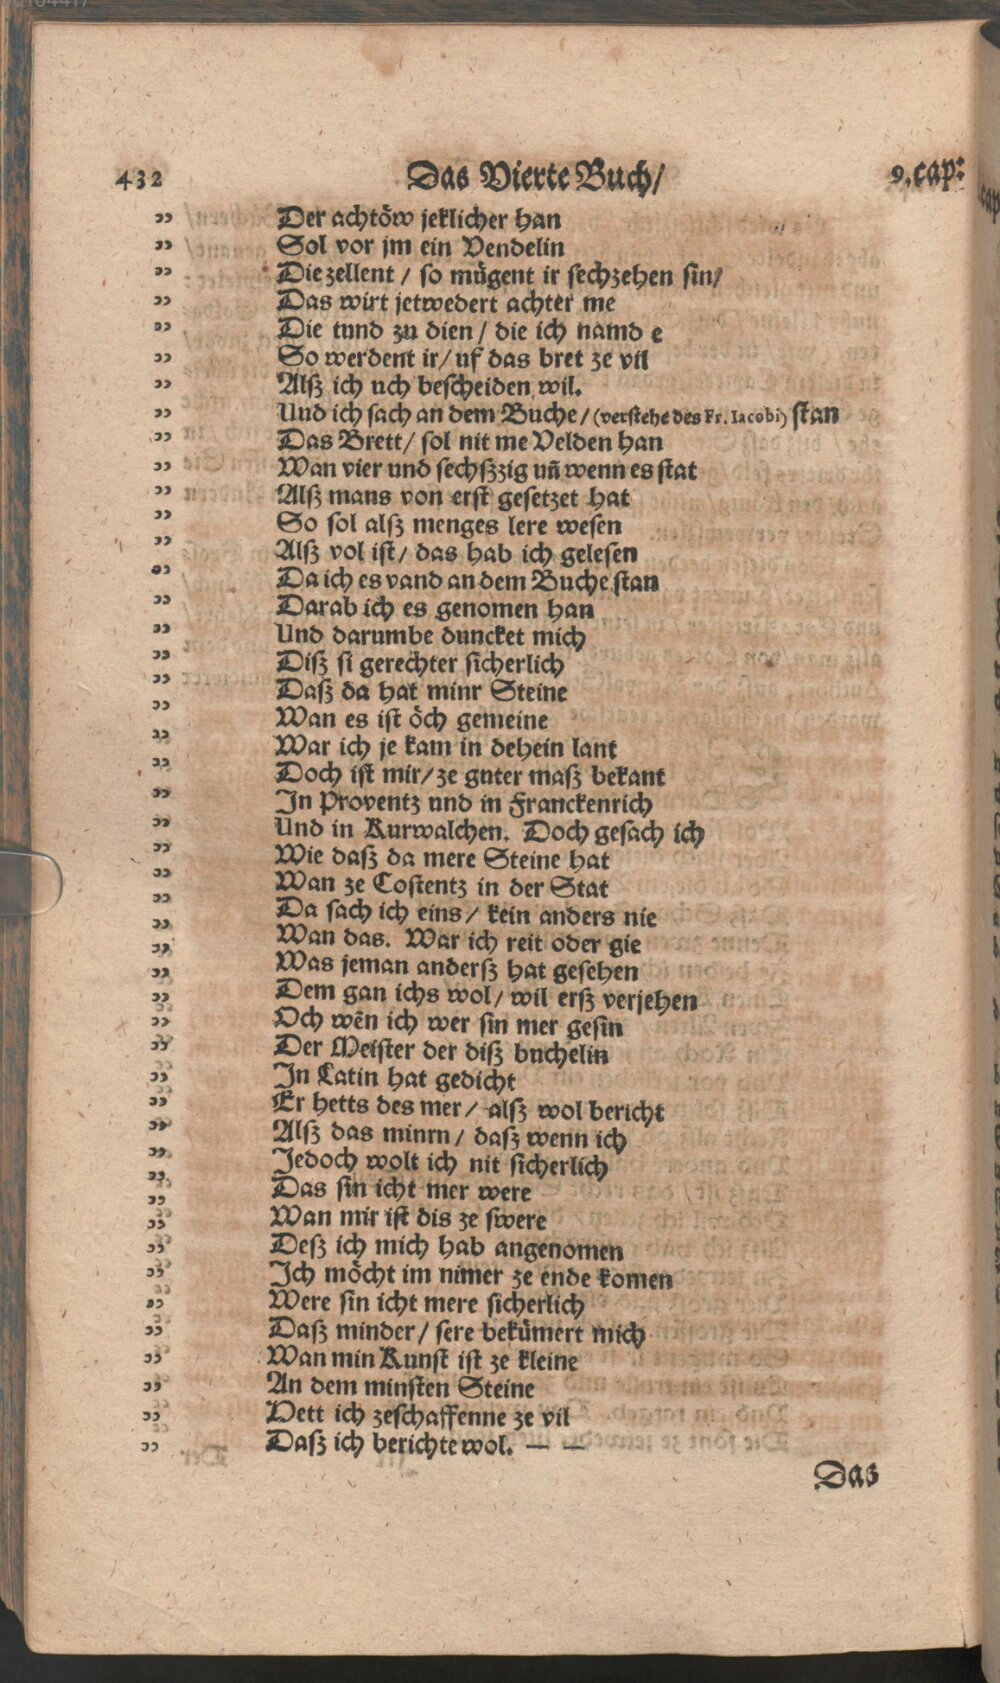 432 Das Vierte Buch/ 9.cap:
„ Der achtöw jeklicher han
„ Sol vor jm ein Vendelin
„ Die zellent / so mügent ir sechzehen sin/
„ Das wirt jetwedert achter me
„ Die tund zu dien / die ich namd e
„ So werdent ir/ uf das bret ze vil
„ Alß ich uch bescheiden wil.
„ Und ich sach an dem Buche / (verstehe des Fr. Iacobi) stan
„ Das Brett/ sol nit me Velden han
„ Wan vier und sechßzig uñ wenn es stat
„ Alß mans von erst gesetzet hat
„ So sol alß menges lere wesen
„ Alß vol ist/ das hab ich gelesen
„ Da ich es vand an dem Buche stan
„ Darab ich es genomen han
„ Und darumbe duncket mich
„ Diß si gerechter sicherlich
„ Daß da hat minr Steine
„ Wan es ist öch gemeine
„ War ich je kam in dehein lant
„ Doch ist mir/ ze guter maß bekant
„ In Proventz und in Franckenrich
„ Und in Kurwalchen. Doch gesach ich
„ Wie daß da mere Steine hat
„ Wan ze Costentz in der Stat
„ Da sach ich eins / kein anders nie
„ Wan das. War ich reit oder gie
„ Was jeman anderß hat gesehen
„ Dem gan ichs wol/ wil erß verjehen
„ Och wēn ich wer sin mer gesin
„ Der Meister der diß buchelin
„ In Latin hat gedicht
„ Er hetts des mer / alß wol bericht
„ Alß das minrn / daß wenn ich
„ Jedoch wolt ich nit sicherlich
„ Das sin icht mer were
„ Wan mir ist dis ze swere
„ Deß ich mich hab angenomen
„ Ich möcht im nimer ze ende komen
„ Were sin icht mere sicherlich
„ Daß minder / sere bekümert mich
„ Wan min Kunst ist ze kleine
„ An dem minsten Steine
„ Hett ich zeschaffenne ze vil
„ Daß ich berichte wol. — —
Das